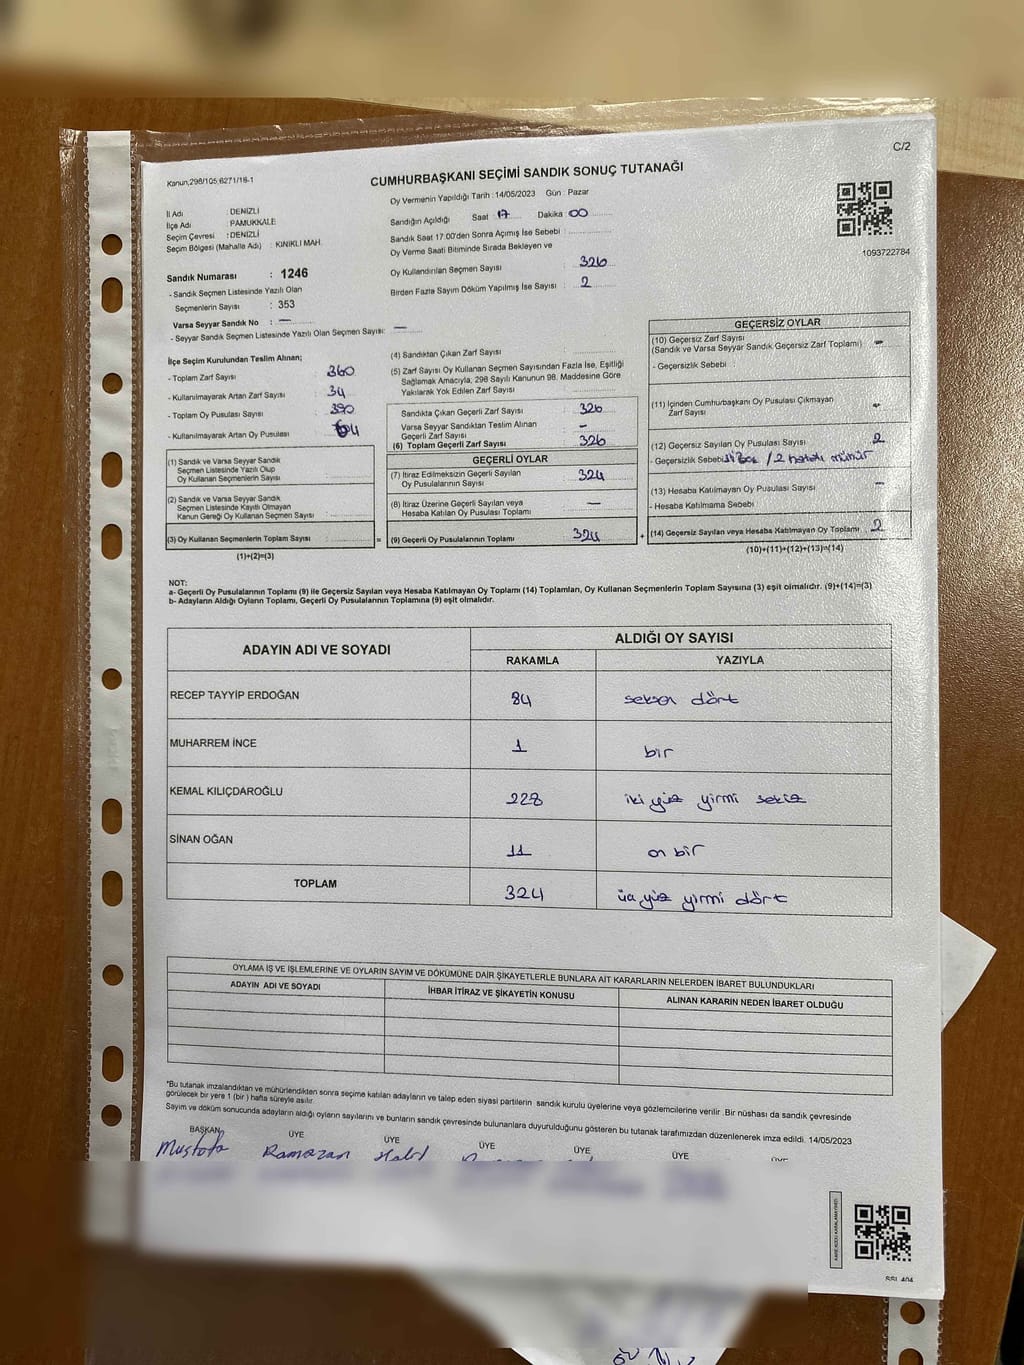 C/2
Kanun,298/105,6271/18-1
CUMHURBAŞKANI SEÇİMİ SANDIK SONUÇ TUTANAĞI
Oy Vermenin Yapıldığı Tarih : 14/05/2023 Gün : Pazar
İl Adı : DENİZLİ
İlçe Adı : PAMUKKALE
Seçim Çevresi : DENİZLİ
Seçim Bölgesi (Mahalle Adı) : KINIKLI MAH.
Sandığın Açıldığı Saat 17 Dakika 00
Sandık Saat 17:00'den Sonra Açımış İse Sebebi :
Oy Verme Saati Bitiminde Sırada Bekleyen ve
Oy Kullandırılan Seçmen Sayısı : 326
Birden Fazla Sayım Döküm Yapılmış İse Sayısı : 2
1093722784
Sandık Numarası : 1246
- Sandık Seçmen Listesinde Yazılı Olan
Seçmenlerin Sayısı : 353
Varsa Seyyar Sandık No : —
- Seyyar Sandık Seçmen Listesinde Yazılı Olan Seçmen Sayısı: —
İlçe Seçim Kurulundan Teslim Alınan;
- Toplam Zarf Sayısı : 360
- Kullanılmayarak Artan Zarf Sayısı : 34
- Toplam Oy Pusulası Sayısı : 390
- Kullanılmayarak Artan Oy Pusulası
(1) Sandık ve Varsa Seyyar Sandık
Seçmen Listesinde Yazılı Olup
Oy Kullanan Seçmenlerin Sayısı :
(2) Sandık ve Varsa Seyyar Sandık
Seçmen Listesinde Kayıtlı Olmayan
Kanun Gereği Oy Kullanan Seçmen Sayısı :
(3) Oy Kullanan Seçmenlerin Toplam Sayısı : =
(1)+(2)=(3)
(4) Sandıktan Çıkan Zarf Sayısı :
(5) Zarf Sayısı Oy Kullanan Seçmen Sayısından Fazla İse, Eşitliği
Sağlamak Amacıyla, 298 Sayılı Kanunun 98. Maddesine Göre
Yakılarak Yok Edilen Zarf Sayısı :
Sandıkta Çıkan Geçerli Zarf Sayısı : 326
Varsa Seyyar Sandıktan Teslim Alınan
Geçerli Zarf Sayısı : —
(6) Toplam Geçerli Zarf Sayısı : 326
GEÇERLİ OYLAR
(7) İtiraz Edilmeksizin Geçerli Sayılan
Oy Pusulalarının Sayısı : 324
(8) İtiraz Üzerine Geçerli Sayılan veya
Hesaba Katılan Oy Pusulası Toplamı : —
(9) Geçerli Oy Pusulalarının Toplamı : 324 +
GEÇERSİZ OYLAR
(10) Geçersiz Zarf Sayısı
(Sandık ve Varsa Seyyar Sandık Geçersiz Zarf Toplamı) : —
- Geçersizlik Sebebi :
(11) İçinden Cumhurbaşkanı Oy Pusulası Çıkmayan
Zarf Sayısı : —
(12) Geçersiz Sayılan Oy Pusulası Sayısı : 2
- Geçersizlik Sebebi: / 2 hatalı mühür
(13) Hesaba Katılmayan Oy Pusulası Sayısı : —
- Hesaba Katılmama Sebebi :
(14) Geçersiz Sayılan veya Hesaba Katılmayan Oy Toplamı : 2
(10)+(11)+(12)+(13)=(14)
NOT:
a- Geçerli Oy Pusulalarının Toplamı (9) ile Geçersiz Sayılan veya Hesaba Katılmayan Oy Toplamı (14) Toplamları, Oy Kullanan Seçmenlerin Toplam Sayısına (3) eşit olmalıdır. (9)+(14)=(3)
b- Adayların Aldığı Oyların Toplamı, Geçerli Oy Pusulalarının Toplamına (9) eşit olmalıdır.
ADAYIN ADI VE SOYADI ALDIĞI OY SAYISI
RAKAMLA YAZIYLA
RECEP TAYYİP ERDOĞAN 84 seksen dört
MUHARREM İNCE 1 bir
KEMAL KILIÇDAROĞLU 228 iki yüz yirmi sekiz
SİNAN OĞAN 11 on bir
TOPLAM 324 üç yüz yirmi dört
OYLAMA İŞ VE İŞLEMLERİNE VE OYLARIN SAYIM VE DÖKÜMÜNE DAİR ŞİKAYETLERLE BUNLARA AİT KARARLARIN NELERDEN İBARET BULUNDUKLARI
ADAYIN ADI VE SOYADI İHBAR İTİRAZ VE ŞİKAYETİN KONUSU ALINAN KARARIN NEDEN İBARET OLDUĞU
*Bu tutanak imzalandıktan ve mühürlendikten sonra seçime katılan adayların ve talep eden siyasi partilerin sandık kurulu üyelerine veya gözlemcilerine verilir. Bir nüshası da sandık çevresinde
görülecek bir yere 1 (bir) hafta süreyle asılır.
Sayım ve döküm sonucunda adayların aldığı oyların sayılarını ve bunların sandık çevresinde bulunanlara duyurulduğunu gösteren bu tutanak tarafımızdan düzenlenerek imza edildi. 14/05/2023
BAŞKAN ÜYE ÜYE ÜYE ÜYE ÜYE ÜYE
Mustafa Ramazan Halil